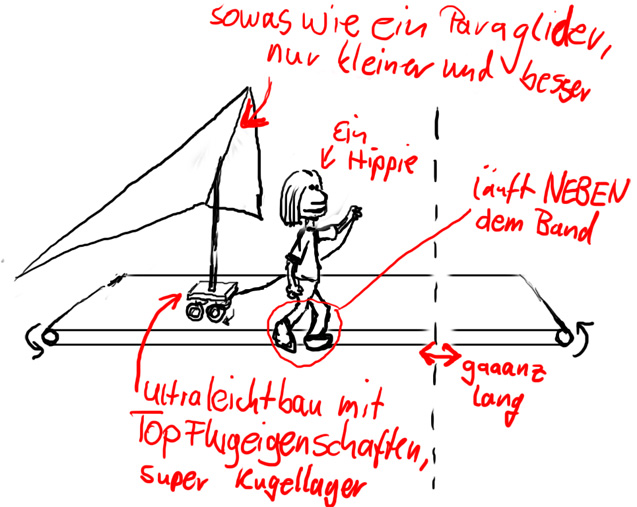 sowas wie ein Paraglider,
nur kleiner und besser
Ein
Hippie
läuft NEBEN
dem Band
gaaanz
lang
ultraleichtbau mit
Top Flugeigenschaften,
super Kugellager